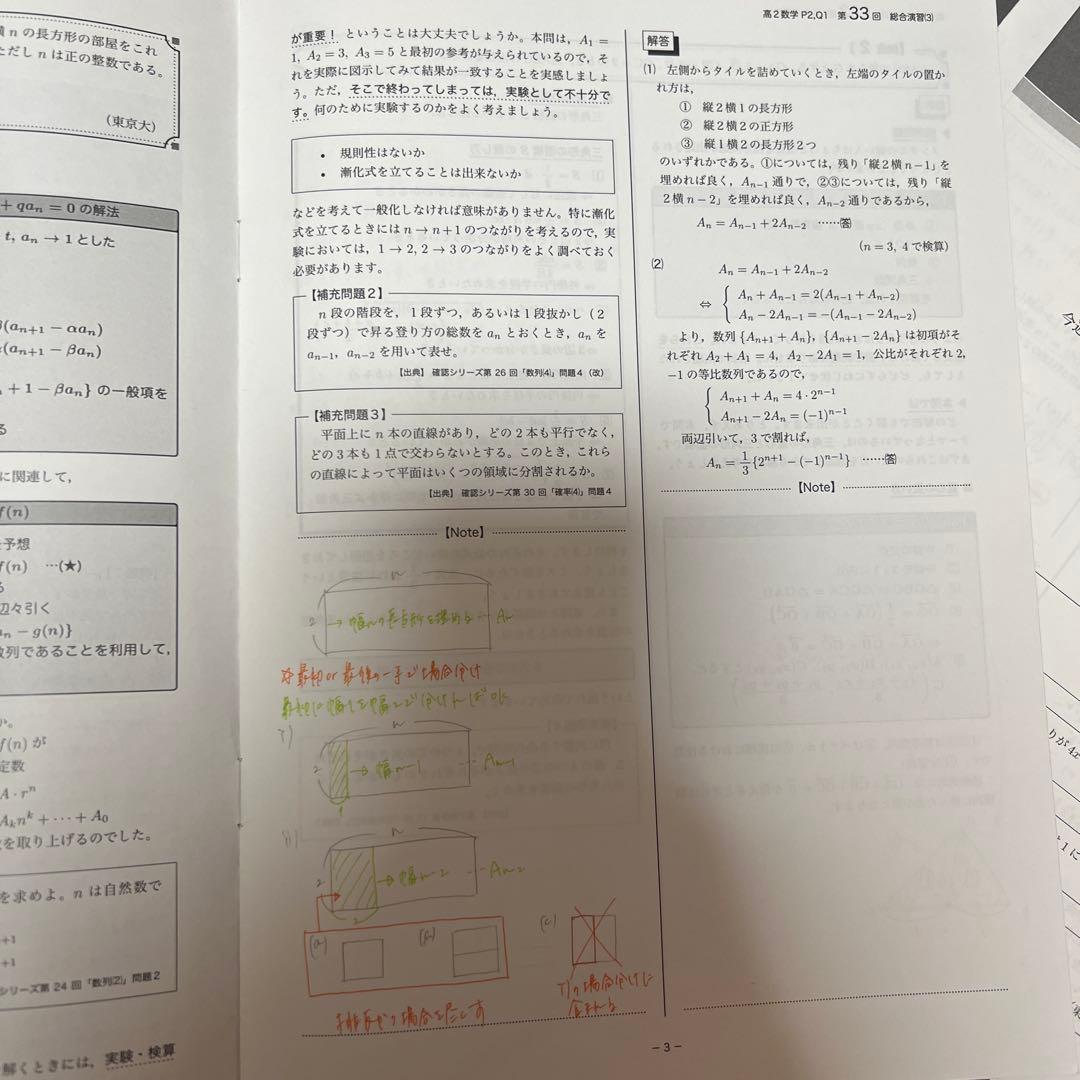 横 n の長方形の部屋をこれ
ただし n は正の整数である。
(東京大)
+ qaₙ = 0 の解法
t, aₙ → 1 とした
(aₙ₊₁ − αaₙ)
(aₙ₊₁ − βaₙ)
n + 1 − βaₙ} の一般項を
る
に関連して,
f(n)
を予想
f(n) …(★)
る
辺々引く
aₙ − g(n)}
数列であることを利用して,
か。
f(n) が
定数
A · rⁿ
Aₖnᵏ + ⋯ + A₀
を取り上げるのでした。
を求めよ。n は自然数で
+1
+1
シリーズ第 24 回「数列(2)」問題 2
解くときには, 実験・検算
が重要! ということは大丈夫でしょうか。本問は, A₁ =
1, A₂ = 3, A₃ = 5 と最初の参考が与えられているので, そ
れを実際に図示してみて結果が一致することを実感しましょ
う。ただ, そこで終わってしまっては, 実験として不十分で
す。何のために実験するのかをよく考えましょう。
• 規則性はないか
• 漸化式を立てることは出来ないか
などを考えて一般化しなければ意味がありません。特に漸化
式を立てるときには n → n + 1 のつながりを考えるので, 実
験においては, 1 → 2, 2 → 3 のつながりをよく調べておく
必要があります。
【補充問題 2】
n 段の階段を, 1 段ずつ, あるいは 1 段抜かし ( 2
段ずつ) で昇る登り方の総数を aₙ とおくとき, aₙ を
aₙ₋₁, aₙ₋₂ を用いて表せ。
【出典】 確認シリーズ第 26 回「数列(4)」問題 4 (改)
【補充問題 3】
平面上に n 本の直線があり, どの 2 本も平行でなく,
どの 3 本も 1 点で交わらないとする。このとき, これら
の直線によって平面はいくつの領域に分割されるか。
【出典】 確認シリーズ第 30 回「確率(4)」問題 4
【Note】
n
2 → 幅nの長方形を埋める … Aₙ
最初 or 最後の一手で場合分け
最初に幅1と幅2で分ければOK
n
2 → 幅n−1 … Aₙ₋₁
1
n
2 → 幅n−2 … Aₙ₋₂
2
(a) (b) (c)
の場合分けに
含まれる
高 2 数学 P2,Q1 第 33 回 総合演習(3)
解答
(1) 左側からタイルを詰めていくとき, 左端のタイルの置か
れ方は,
① 縦 2 横 1 の長方形
② 縦 2 横 2 の正方形
③ 縦 1 横 2 の長方形 2 つ
のいずれかである。①については, 残り「縦 2 横 n − 1」を
埋めれば良く, Aₙ₋₁ 通りで, ②③については, 残り「縦
2 横 n − 2」を埋めれば良く, Aₙ₋₂ 通りであるから,
Aₙ = Aₙ₋₁ + 2Aₙ₋₂ ……答
(n = 3, 4 で検算)
(2) Aₙ = Aₙ₋₁ + 2Aₙ₋₂
⇔ { Aₙ + Aₙ₋₁ = 2(Aₙ₋₁ + Aₙ₋₂)
Aₙ − 2Aₙ₋₁ = −(Aₙ₋₁ − 2Aₙ₋₂)
より, 数列 {Aₙ₊₁ + Aₙ}, {Aₙ₊₁ − 2Aₙ} は初項がそ
れぞれ A₂ + A₁ = 4, A₂ − 2A₁ = 1, 公比がそれぞれ 2,
−1 の等比数列であるので,
{ Aₙ₊₁ + Aₙ = 4 · 2ⁿ⁻¹
Aₙ₊₁ − 2Aₙ = (−1)ⁿ⁻¹
両辺引いて, 3 で割れば,
Aₙ = 1/3 {2ⁿ⁺¹ − (−1)ⁿ⁻¹} ……答
【Note】
− 3 −
りが 4x